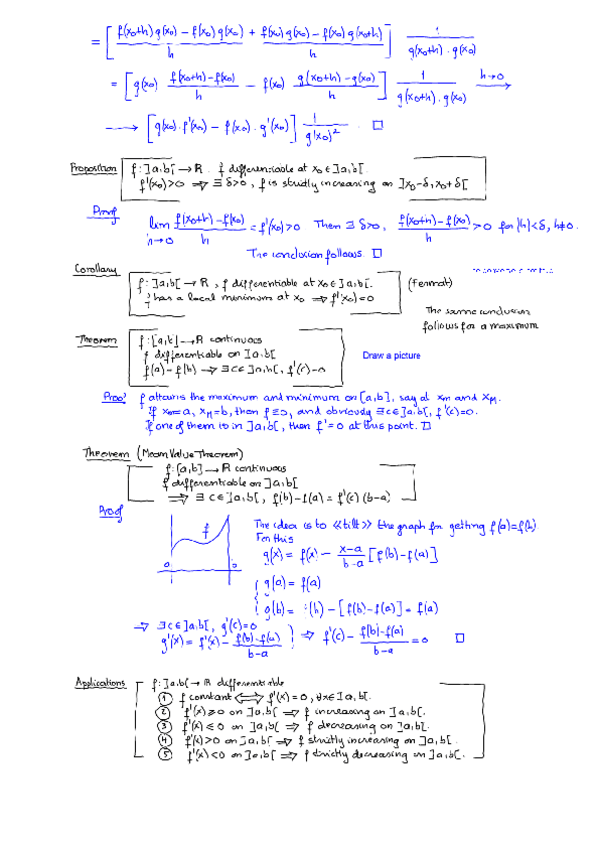 = [ (f(x₀+h)g(x₀) − f(x₀)g(x₀))/h + (f(x₀)g(x₀) − f(x₀)g(x₀+h))/h ] 1/(g(x₀+h)·g(x₀))
= [ g(x₀) (f(x₀+h)−f(x₀))/h − f(x₀) (g(x₀+h)−g(x₀))/h ] 1/(g(x₀+h)·g(x₀)) h→0 →
→ [ g(x₀)·f'(x₀) − f(x₀)·g'(x₀) ] 1/g(x₀)² . □
Proposition f: ]a,b[ → R. f differentiable at x₀∈]a,b[.
f'(x₀)>0 ⇒ ∃ δ>0, f is strictly increasing on ]x₀−δ, x₀+δ[
Proof lim h→0 (f(x₀+h)−f(x₀))/h = f'(x₀)>0 Then ∃ δ>0, (f(x₀+h)−f(x₀))/h >0 for |h|<δ, h≠0.
The conclusion follows. □
Corollary f: ]a,b[ → R, f differentiable at x₀∈]a,b[. (Fermat)
f has a local minimum at x₀ ⇒ f'(x₀)=0
The same conclusion
follows for a maximum
Theorem f: [a,b] → R continuous
f differentiable on ]a,b[ Draw a picture
f(a)=f(b) ⇒ ∃ c∈]a,b[, f'(c)=0
Proof f attains the maximum and minimum on [a,b], say at xₘ and x_M.
If xₘ=a, x_M=b, then f≡0, and obviously ∃c∈]a,b[, f'(c)=0.
If one of them is in ]a,b[, then f'=0 at this point. □
Theorem (Mean Value Theorem)
f: [a,b] → R continuous
f differentiable on ]a,b[
⇒ ∃ c∈]a,b[, f(b)−f(a) = f'(c)(b−a)
Proof
f
The idea is to «tilt» the graph for getting f(a)=f(b)
For this
g(x) = f(x) − (x−a)/(b−a) [f(b)−f(a)]
g(a) = f(a)
g(b) = f(b) − [f(b)−f(a)] = f(a)
⇒ ∃c∈]a,b[, g'(c)=0
g'(x) = f'(x) − (f(b)−f(a))/(b−a) ⇒ f'(c) − (f(b)−f(a))/(b−a) = 0 □
Applications f: ]a,b[ → R differentiable
① f constant ⇔ f'(x)=0, ∀x∈]a,b[.
② f'(x)≥0 on ]a,b[ ⇒ f increasing on ]a,b[.
③ f'(x)≤0 on ]a,b[ ⇒ f decreasing on ]a,b[.
④ f'(x)>0 on ]a,b[ ⇒ f strictly increasing on ]a,b[.
⑤ f'(x)<0 on ]a,b[ ⇒ f strictly decreasing on ]a,b[.